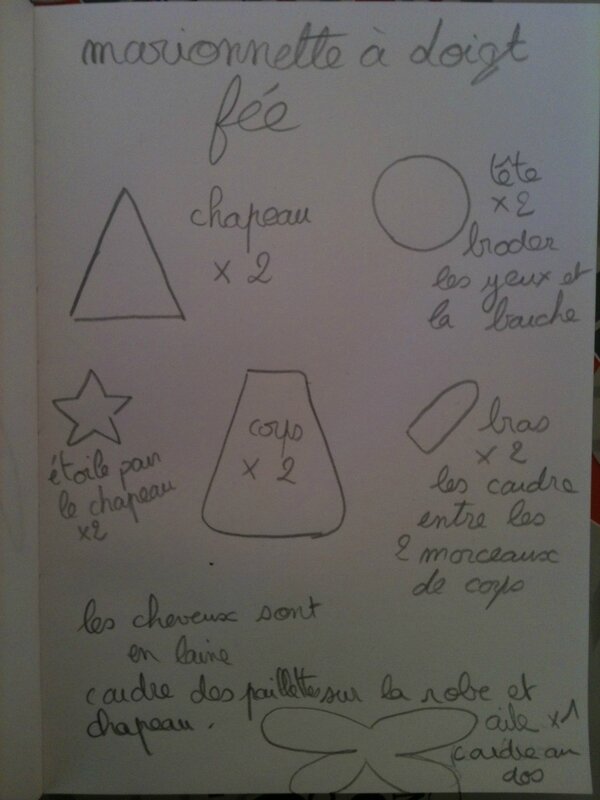 marionnette à doigt
fée
chapeau
x 2
tête
x 2
broder
les yeux et
la bouche
étoile pour
le chapeau
x2
corps
x 2
bras
x 2
les coudre
entre les
2 morceaux
de corps
les cheveux sont
en laine
coudre des paillettes sur la robe et
chapeau.
aile x1
coudre au
dos